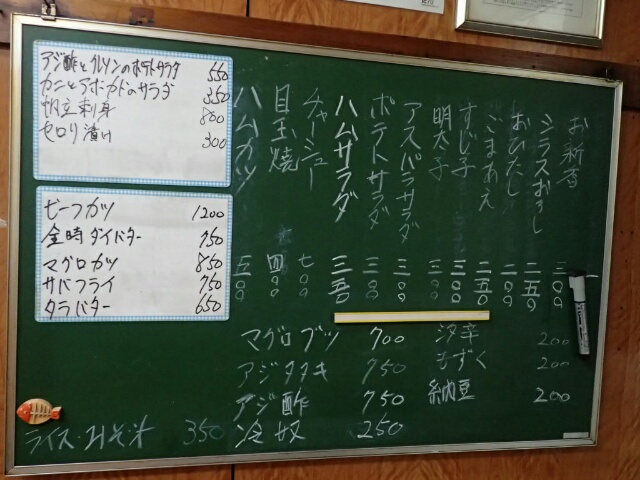 アジ酢とクルリンのポテトサラダ 550
カニとアボカドのサラダ 350
帆立刺身 800
セロリ漬け 300
ビーフカツ 1200
金時ダイバター 750
マグロカツ 850
サバフライ 750
タラバター 650
お新香 三〇〇
シラスおろし 二五〇
おひたし 二〇〇
ごまあえ 二五〇
すじ子 三〇〇
明太子 三〇〇
アスパラサラダ 三〇〇
ポテトサラダ 三〇〇
ハムサラダ 三五〇
チャーシュー 七〇〇
目玉焼 四〇〇
ハムカツ 五〇〇
マグロブツ 700
アジタタキ 750
アジ酢 750
冷奴 250
汐辛 200
もずく 200
納豆 200
ライス・みそ汁 350